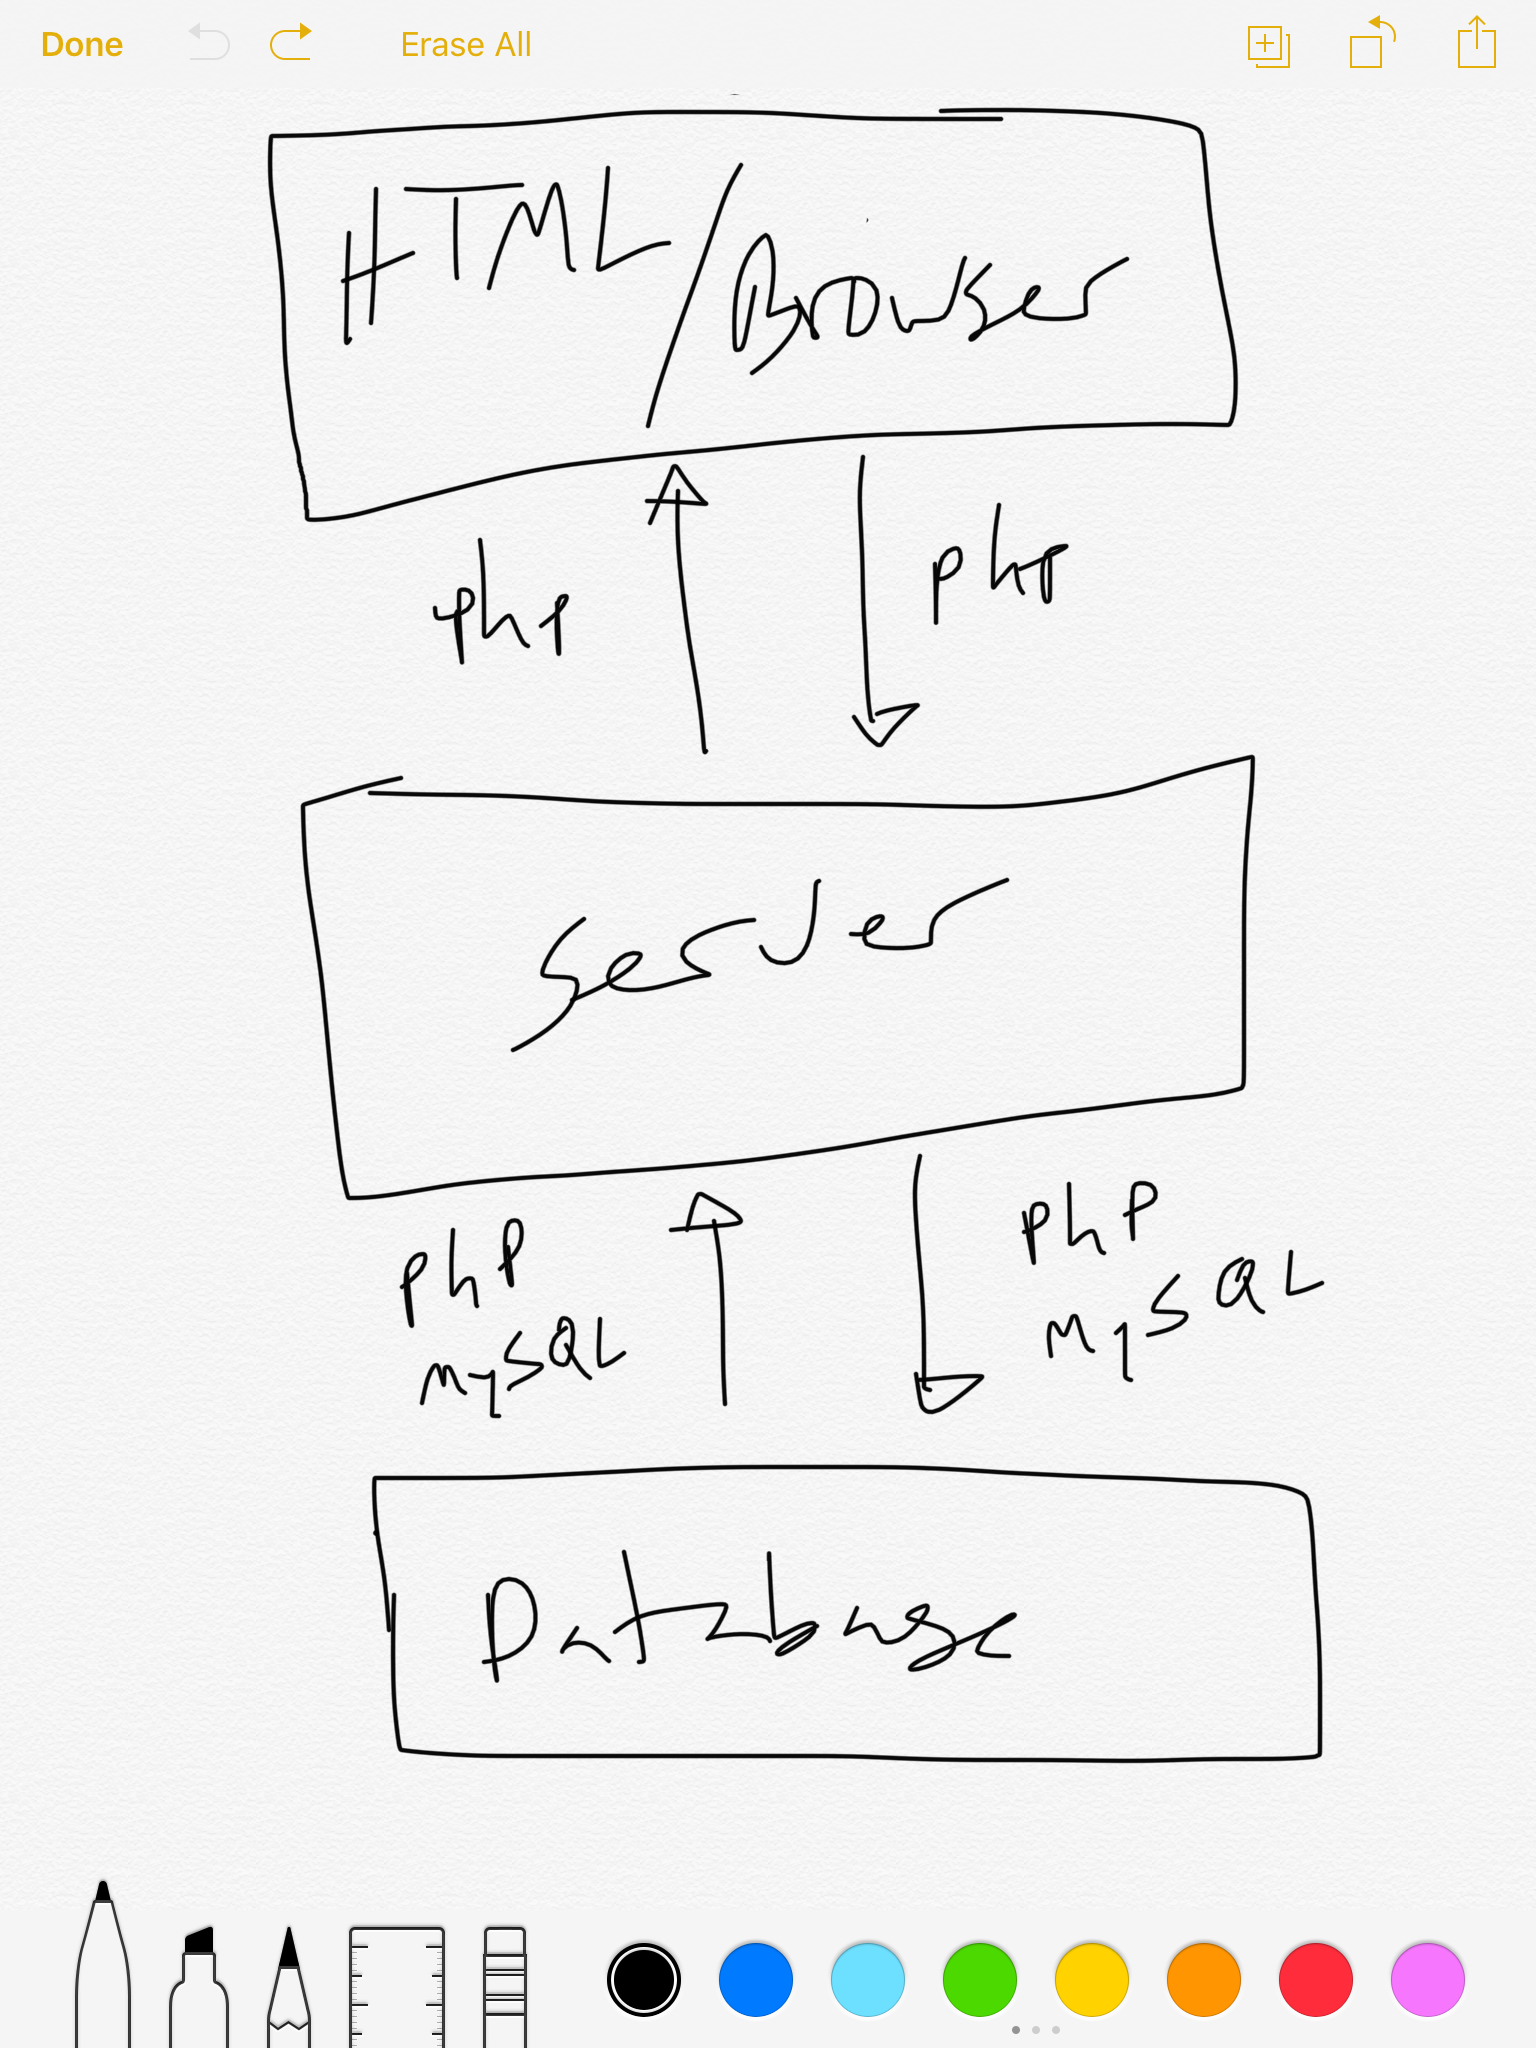 Done
Erase All
HTML/Browser
php
php
Server
php
mySQL
php
mySQL
Database